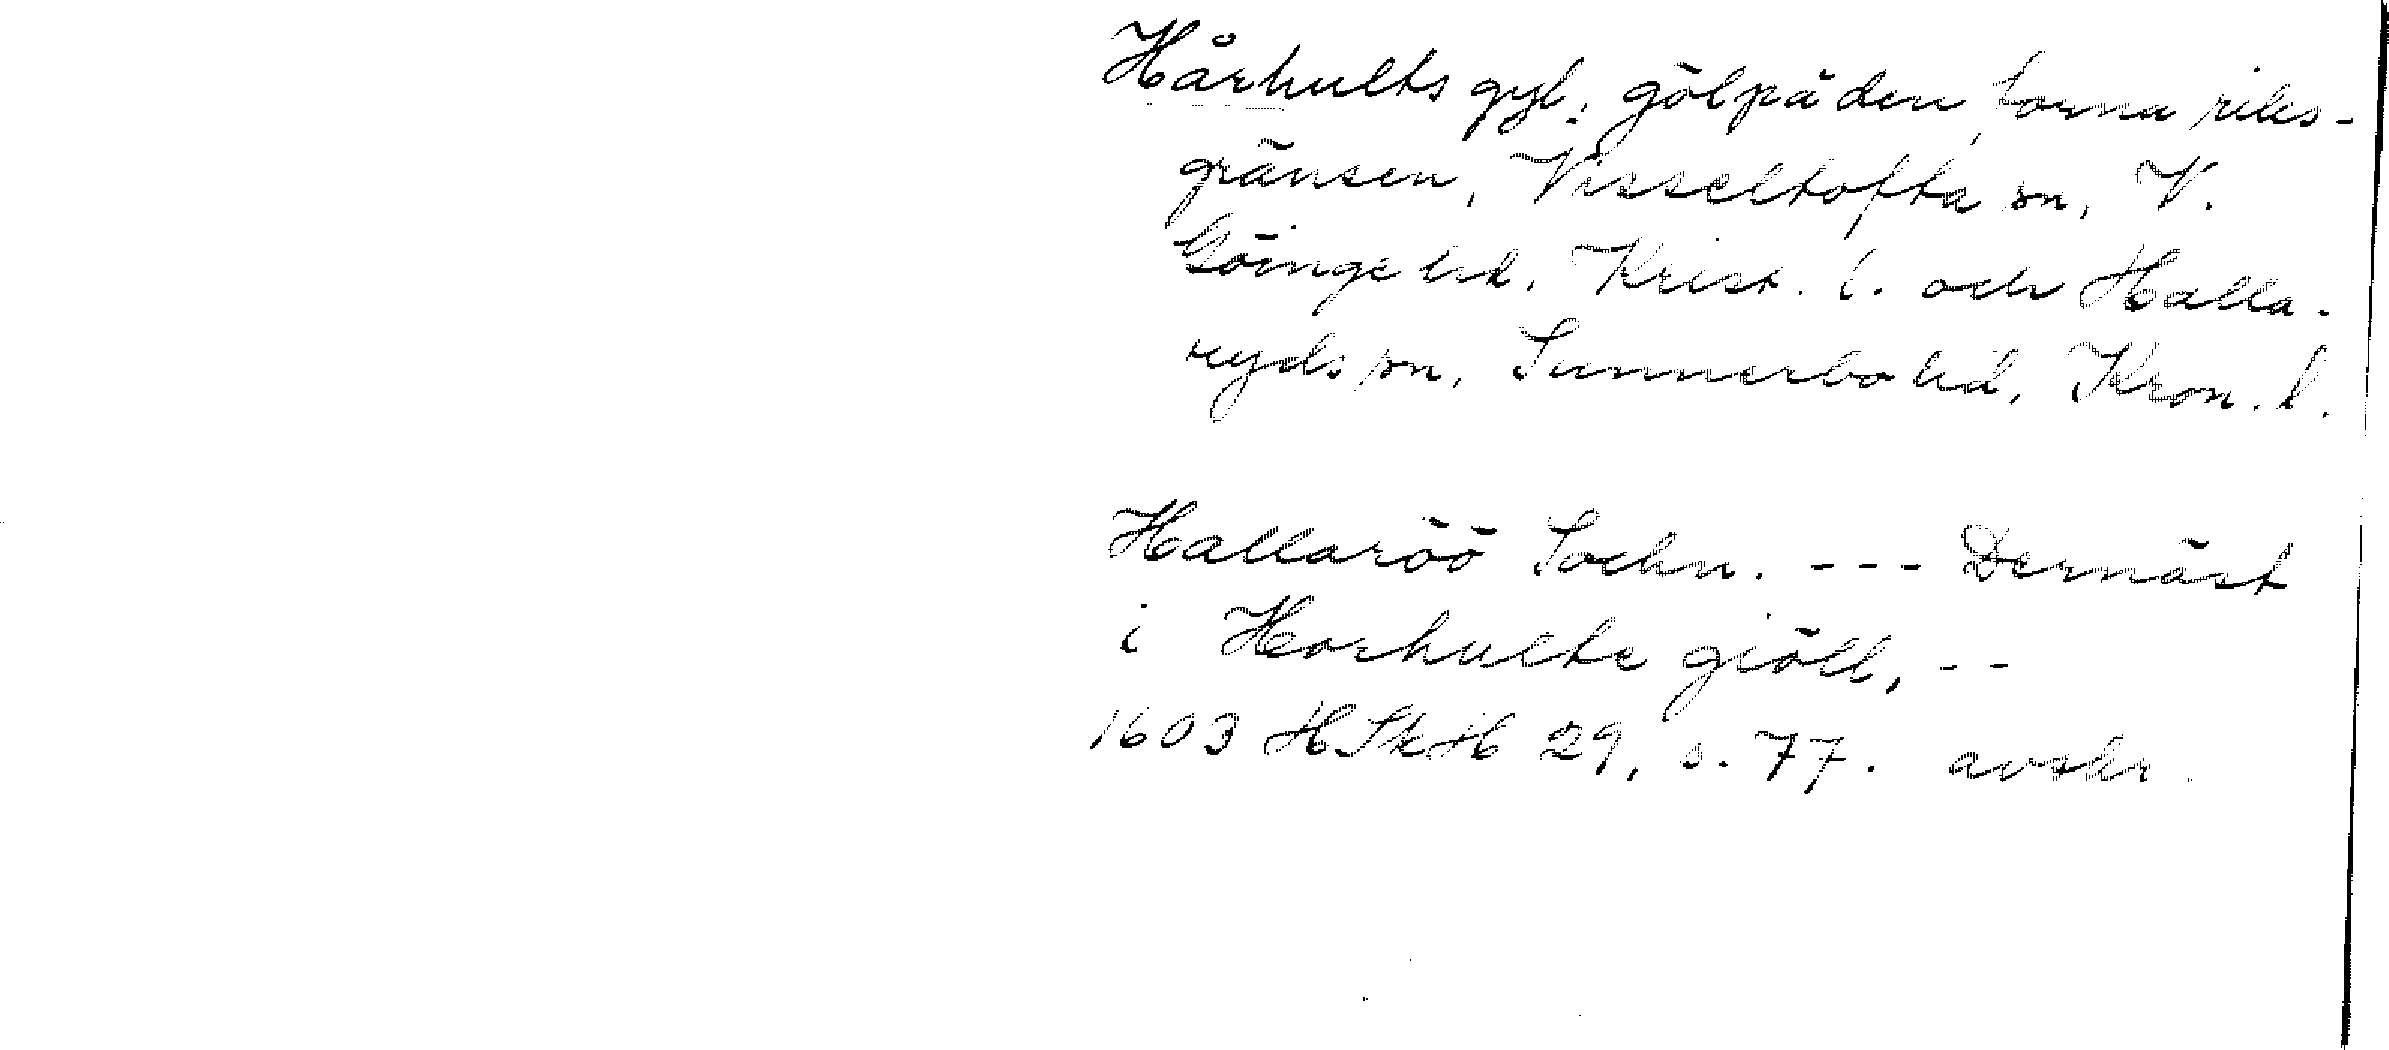 Hårhults gyl: göl på den forna riks-
gränsen, Visseltofta sn, V.
Göinge hd, Krist. l. och Halla-
ryds sn, Sunnerbo hd, Kron. l.
Hallaröö Sochn. --- Dernäst
i Horhulte giöll, --
1603 HSkH 29, s. 77. avskr.